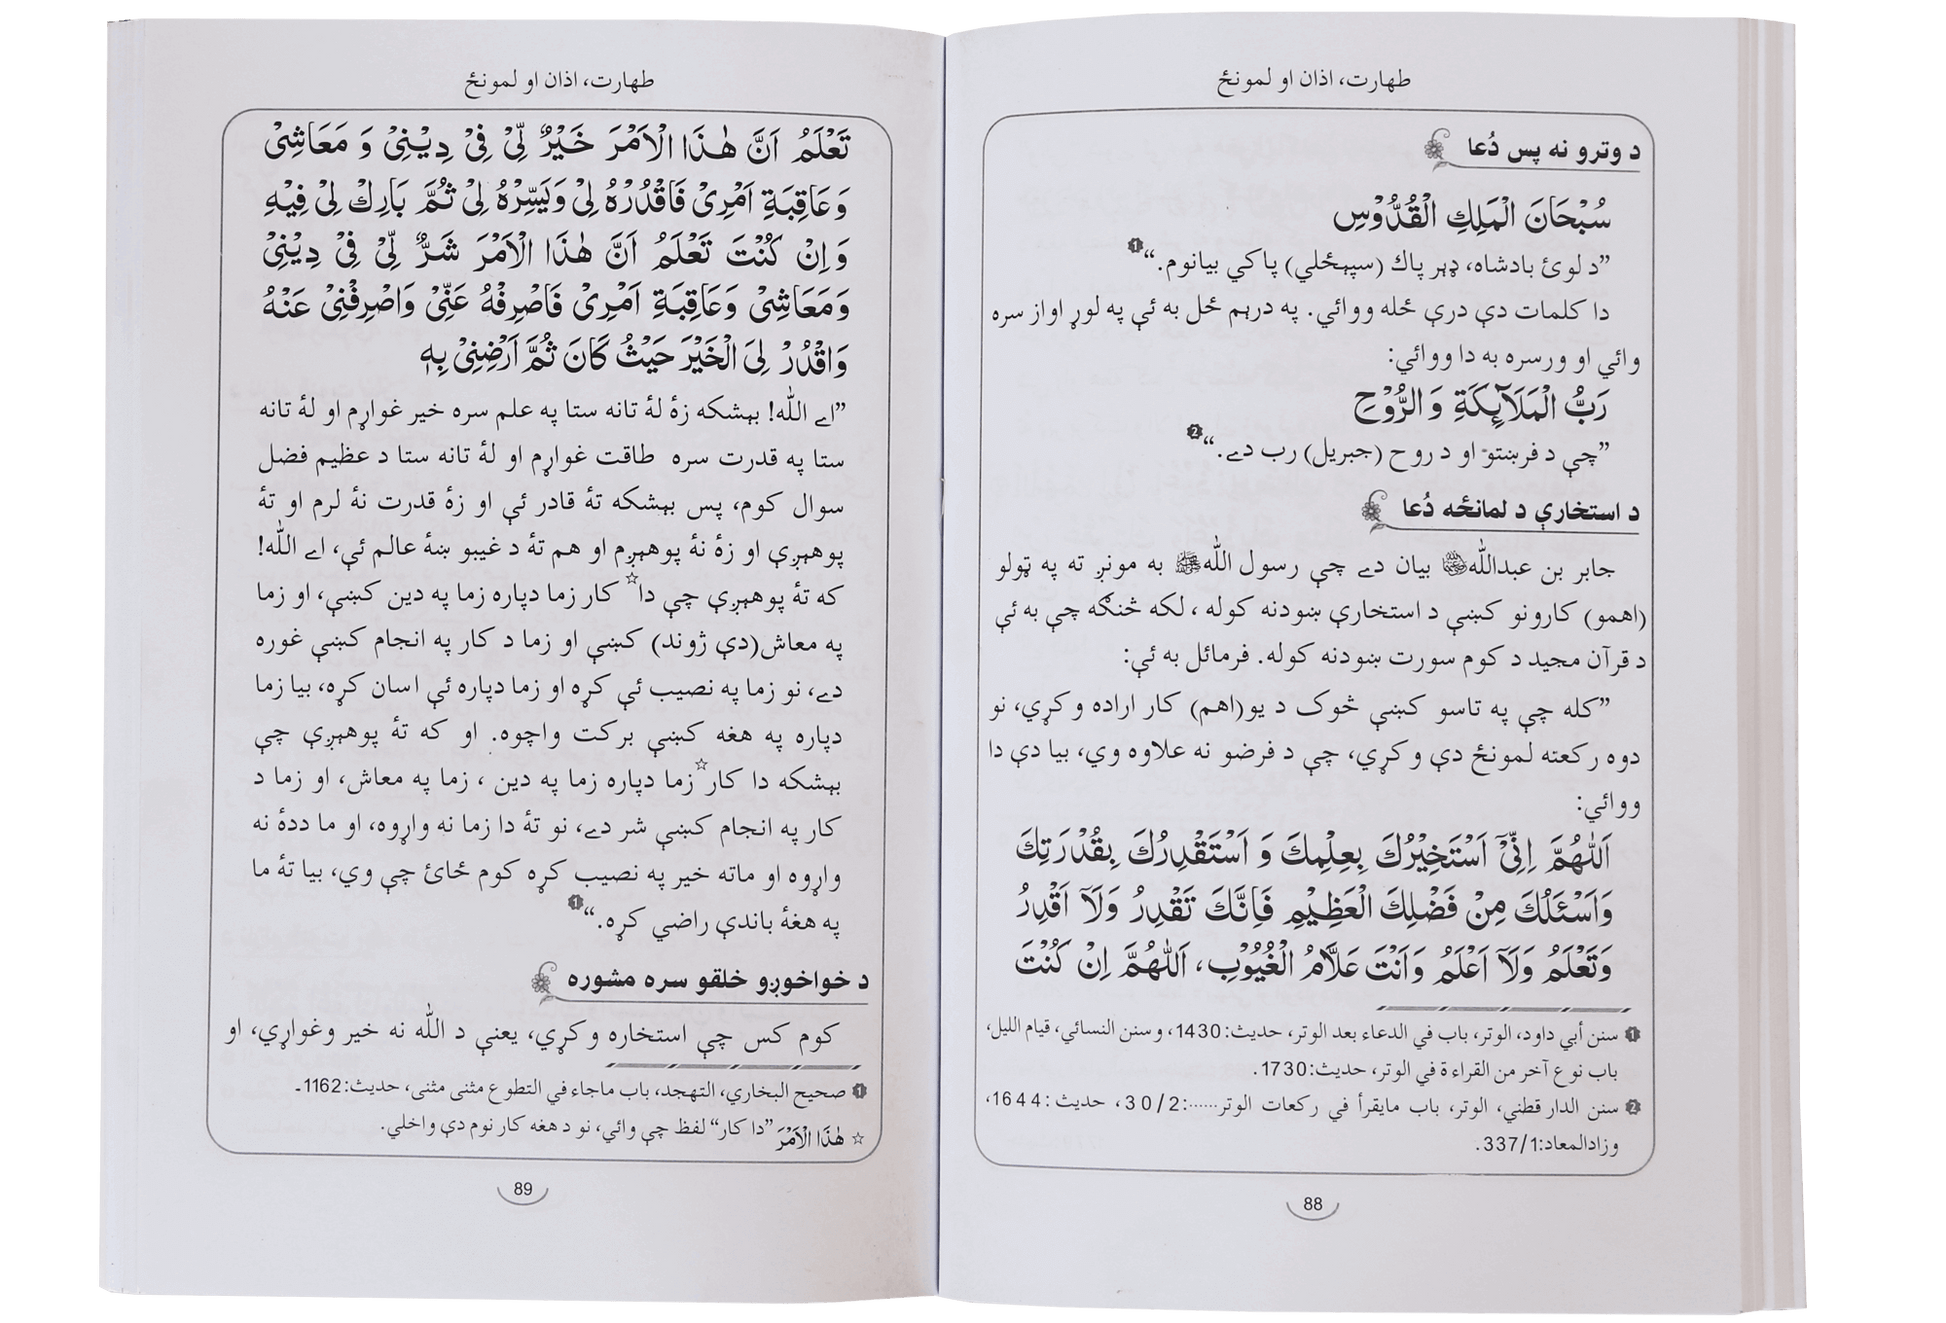 طهارت، اذان او لمونځ
د وترو نه پس دُعا
سُبْحَانَ الْمَلِكِ الْقُدُّوْسِ
”د لوئ بادشاه، ډېر پاك (سپېڅلي) پاكي بيانوم.“❶
دا كلمات دې درې ځله ووائي. په درېم ځل به ئې په لوړ اواز سره
وائي او ورسره به دا ووائي:
رَبُّ الْمَلَآئِكَةِ وَ الرُّوْحِ
”چې د فرښتو او د روح (جبريل) رب دے.“❷
د استخارې د لمانځه دُعا
جابر بن عبداللهؓ بيان دے چې رسول اللهﷺ به مونږ ته په ټولو
(اهمو) كارونو كښې د استخارې ښودنه كوله ، لكه څنګه چې به ئې
د قرآن مجيد د كوم سورت ښودنه كوله. فرمائل به ئې:
”كله چې په تاسو كښې څوک د يو(اهم) كار اراده وكړي، نو
دوه ركعته لمونځ دې وكړي، چې د فرضو نه علاوه وي، بيا دې دا
ووائي:
اَللّٰهُمَّ اِنِّيْٓ اَسْتَخِيْرُكَ بِعِلْمِكَ وَ اَسْتَقْدِرُكَ بِقُدْرَتِكَ
وَاَسْئَلُكَ مِنْ فَضْلِكَ الْعَظِيْمِ فَاِنَّكَ تَقْدِرُ وَلَآ اَقْدِرُ
وَتَعْلَمُ وَلَآ اَعْلَمُ وَاَنْتَ عَلَّامُ الْغُيُوْبِ، اَللّٰهُمَّ اِنْ كُنْتَ
❶ سنن أبي داود، الوتر، باب في الدعاء بعد الوتر، حديث:1430، وسنن النسائي، قيام الليل،
باب نوع آخر من القراءة في الوتر، حديث:1730.
❷ سنن الدارقطني، الوتر، باب مايقرأ في ركعات الوتر......:30/2، حديث:1644،
وزادالمعاد:337/1.
88
طهارت، اذان او لمونځ
تَعْلَمُ اَنَّ هٰذَا الْاَمْرَ خَيْرٌ لِّيْ فِيْ دِيْنِيْ وَ مَعَاشِيْ
وَعَاقِبَةِ اَمْرِيْ فَاقْدُرْهُ لِيْ وَيَسِّرْهُ لِيْ ثُمَّ بَارِكْ لِيْ فِيْهِ
وَاِنْ كُنْتَ تَعْلَمُ اَنَّ هٰذَا الْاَمْرَ شَرٌّ لِّيْ فِيْ دِيْنِيْ
وَمَعَاشِيْ وَعَاقِبَةِ اَمْرِيْ فَاصْرِفْهُ عَنِّيْ وَاصْرِفْنِيْ عَنْهُ
وَاقْدُرْ لِيَ الْخَيْرَ حَيْثُ كَانَ ثُمَّ اَرْضِنِيْ بِهٖ
”اے الله! بېشكه زۀ لۀ تانه ستا په علم سره خير غواړم او لۀ تانه
ستا په قدرت سره طاقت غواړم او لۀ تانه ستا د عظيم فضل
سوال كوم، پس بېشكه تۀ قادر ئې او زۀ قدرت نۀ لرم او تۀ
پوهېږې او زۀ نۀ پوهېږم او هم تۀ د غيبو ښۀ عالم ئې، اے الله!
كه تۀ پوهېږې چې دا☆ كار زما دپاره زما په دين كښې، او زما
په معاش(دې ژوند) كښې او زما د كار په انجام كښې غوره
دے، نو زما په نصيب ئې كړه او زما دپاره ئې اسان كړه، بيا زما
دپاره په هغه كښې بركت واچوه. او كه تۀ پوهېږې چې
بېشكه دا كار☆ زما دپاره زما په دين ، زما په معاش، او زما د
كار په انجام كښې شر دے، نو تۀ دا زما نه واړوه، او ما ددۀ نه
واړوه او ماته خير په نصيب كړه كوم ځائ چې وي، بيا تۀ ما
په هغۀ باندې راضي كړه.“❶
د خواخوږو خلقو سره مشوره
كوم كس چې استخاره وكړي، يعنې د الله نه خير وغواړي، او
❶ صحيح البخاري، التهجد، باب ماجاء في التطوع مثنى مثنى، حديث:1162-
☆ هٰذَا الْاَمْرَ ”دا كار“ لفظ چې وائي، نو د هغه كار نوم دې واخلي.
89